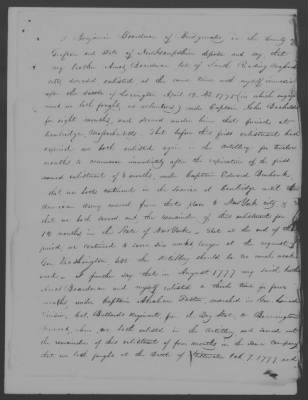 I Benjamin Boardman of Bridgewater in the County of
Grafton and state of New Hampshire depose and say that
my brother Amos Boardman late of South Reading Massachusetts
deceased enlisted at the same time with myself immediately
after the battle of Lexington April 19th 1775 (in which myself
and we both fought as volunteers) under Captain John Bachelder
for eight months, and served under him that period, at
Cambridge, Massachusetts. That before this first enlistment had
expired we both enlisted again in the Artillery for twelve
months to commence immediately after the expiration of the first
named enlistment of 8 months, under Captain Edward Burbank
that we both continued in the service at Cambridge until the
American Army moved from that place to New York city &
that we both served out the remainder of this enlistment for
12 months in the State of New York. That at the end of this
period, we continued to serve six weeks longer at the request of
Gen. Washington lest the Artillery should be too much weak-
ened. I further say that in August 1777 my said brother
Amos Boardman and myself enlisted a third time for four
months under Captain Abraham Foster, marched in Gen. Lincoln's
Division, Col. Bullard's Regiment, for
Vermont, where we both enlisted in the Artillery and served out
the remainder of this enlistment of four months in the same company
that we both fought at the battle of Stillwater Oct 7. 1777, and